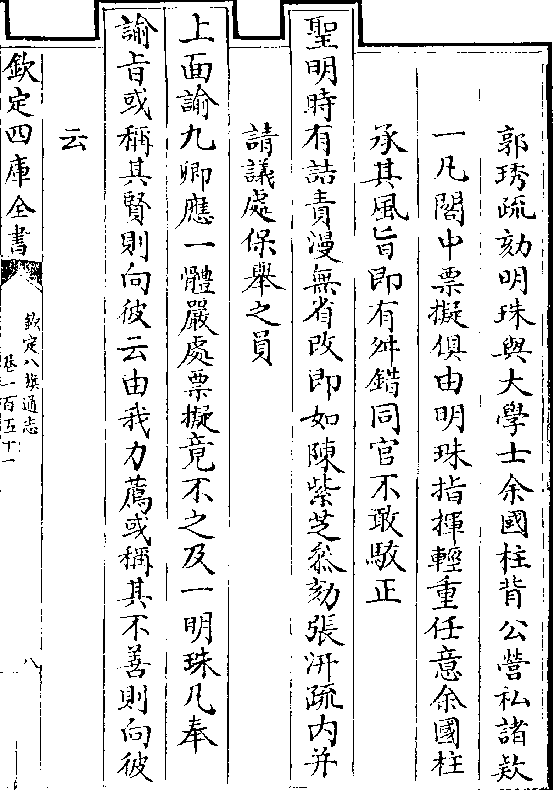 郭琇疏劾明珠與大學士余國柱背公營私諸欵
一凡閣中票擬俱由明珠指揮輕重任意余國柱
承其風旨即有舛錯同官不敢駮正
聖明時有詰責漫無省改即如陳紫芝叅劾張汧疏内并
請議處保舉之員
上面諭九卿應一體嚴處票擬竟不之及一明珠凡奉
諭㫖或稱其賢則向彼云由我力薦或稱其不善則向彼
云
欽定四庫全書
欽定八旗通志
卷一百五十一
八